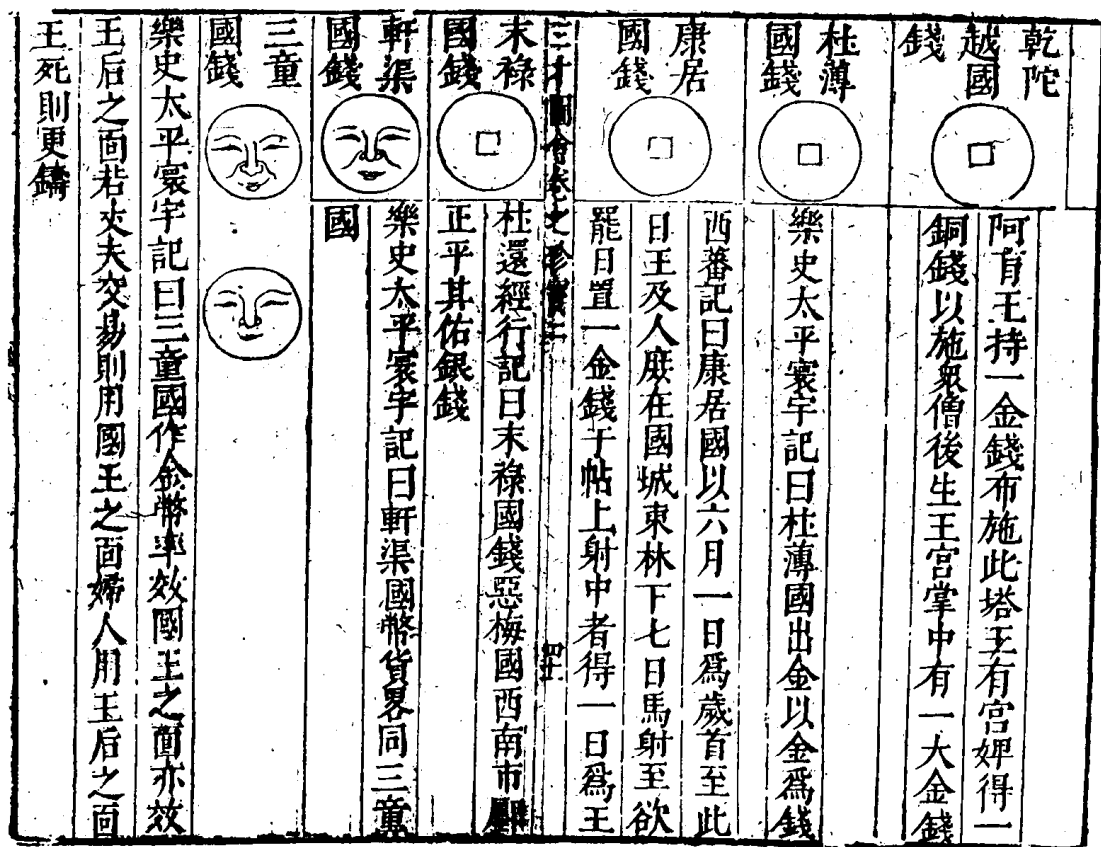 乾陀
越國
錢
阿育王持一金錢布施此塔王有宮婢得一
銅錢以施衆僧後生王宮掌中有一大金錢
杜薄
國錢
樂史太平寰宇記曰杜薄國出金以金爲錢
康居
國錢
西蕃記曰康居國以六月一日爲歲首至此
日王及人庶在國城東林下七日馬射至欲
罷日置一金錢于帖上射中者得一日爲王
三才圖會卷之珍寶二
四十
末祿
國錢
杜還經行記曰末祿國錢惡梅國西南市
正平其佑銀錢
軒渠
國錢
樂史太平寰宇記曰軒渠國幣貨畧同三童
國
三童
國錢
樂史太平寰宇記曰三童國作金幣率效國王之面亦效
王后之面若丈夫交易則用國王之面婦人用王后之面
王死則更鑄